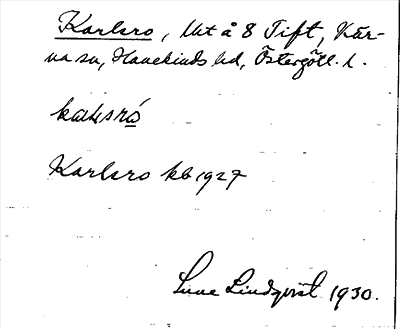 Karlsro, lht å 8 Tift, Kär-
na sn, Hanekinds hd, Östergötl. l.
kaɭsró
Karlsro kb 1927
Sune Lindqvist 1930.